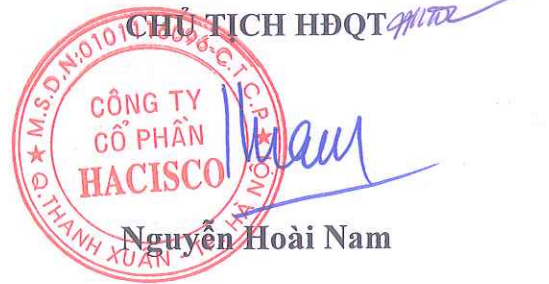 CHỦ TỊCH HĐQT
CÔNG TY
CỔ PHẦN
HACISCO
Q.THANH XUÂN - TP. HÀ NỘI
Nguyễn Hoài Nam